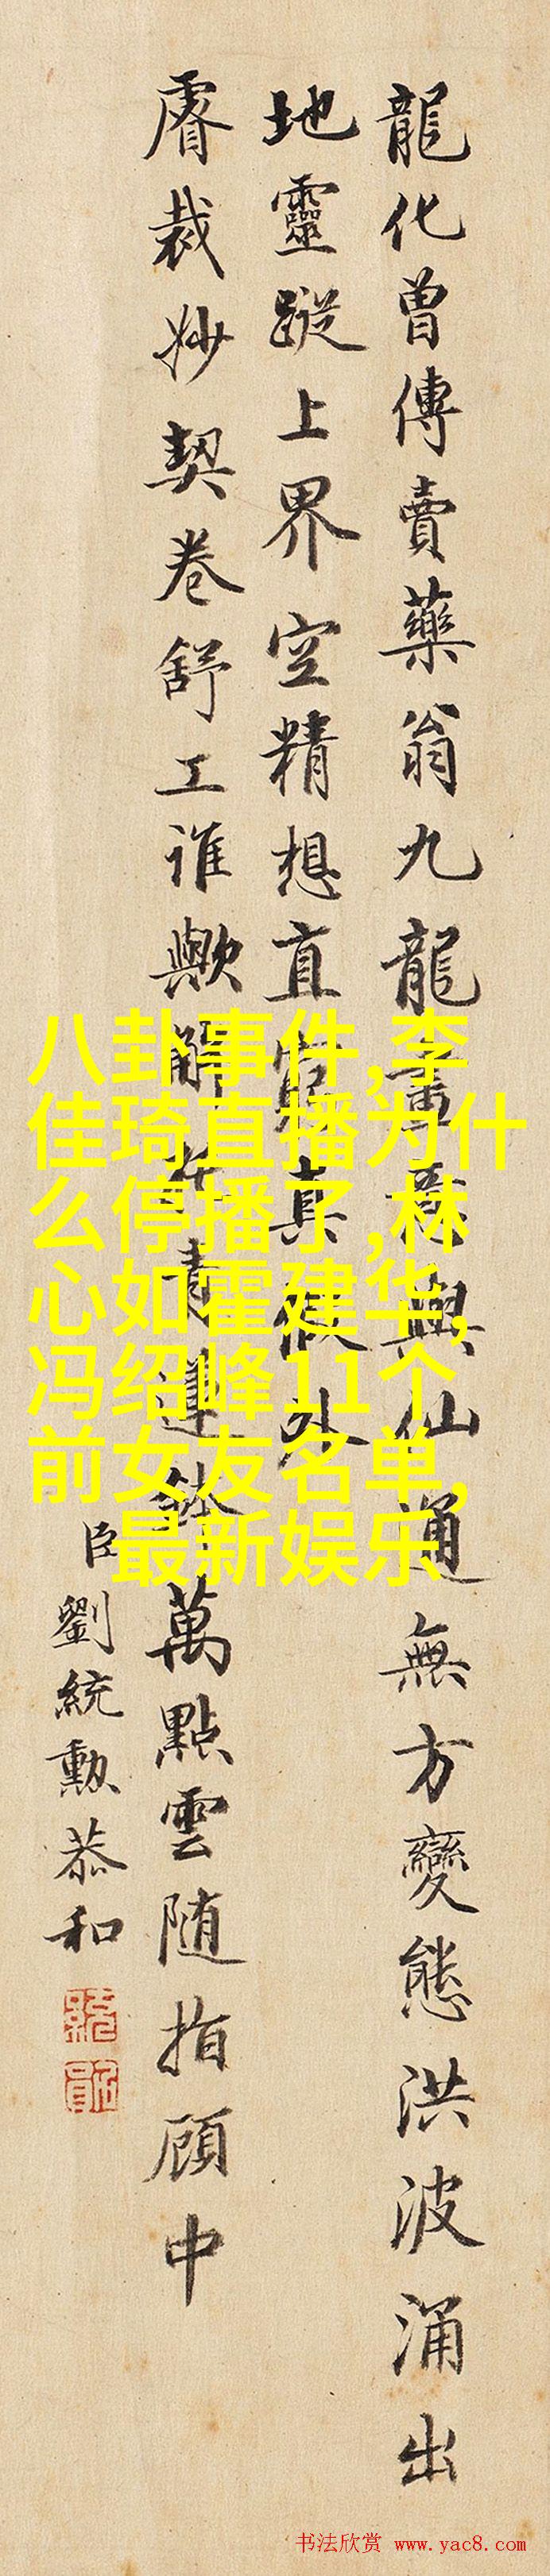 龍化曾傳賣藥翁九龍畫與仙通無方變態洪波涌出
地靈蹤上界空精想直窮真假外
睿裁妙契卷舒工誰歟解青蓮鉢萬點雲随指顧中
臣劉統勳恭和
八卦事件,李
佳琦直播为什
么停播了,林
心如霍建华,
冯绍峰11个
前女友名单,
最新娱乐
书法欣赏 www.yac8.com